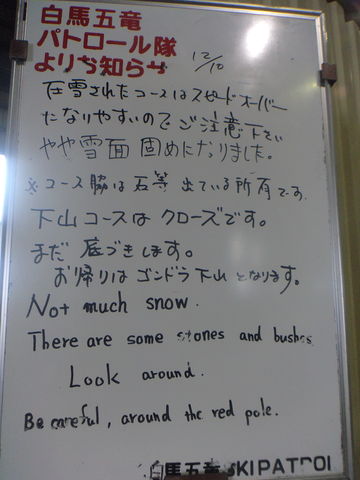 白馬五竜
パトロール隊
よりお知らせ 12/10
圧雪されたコースはスピードオーバー
になりやすいのでご注意下さい
やや雪面固めになりました。
※コース脇は石等出ている所有です.
下山コースはクローズです。
まだ底づきします。
お帰りはゴンドラ下山となります。
Not much snow.
There are some stones and bushes
Look around.
Be careful, around the red pole.
白馬五竜 SKI PATROL